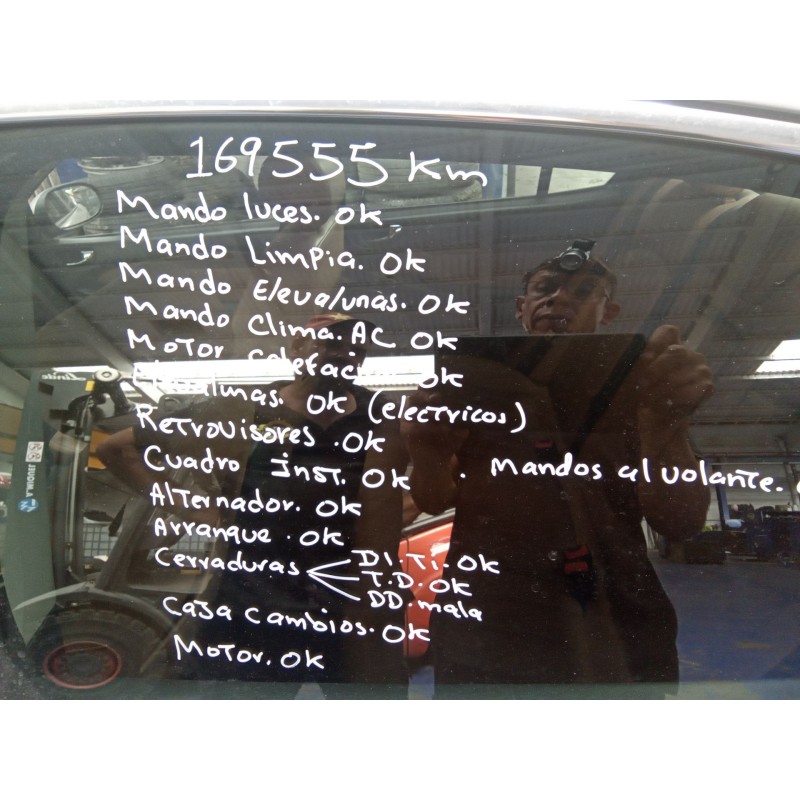 169555 Km
Mando luces. OK
Mando Limpia. OK
Mando Elevalunas. OK
Mando Clima. AC OK
Motor Calefacion OK
Elevalunas. OK (electricos)
Retrovisores. OK
Cuadro inst. OK . Mandos al volante.
Alternador. OK
Arranque. OK
Cerraduras DI.TI. OK
T.D. OK
DD. mala
Caja Cambios. OK
Motor. OK